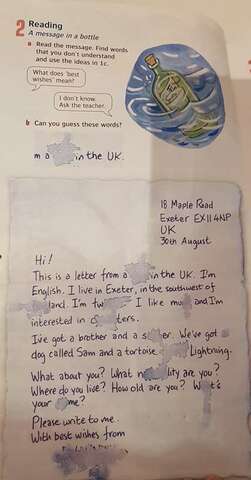 2 Reading
A message in a bottle
a Read the message. Find words
that you don't understand
and use the ideas in 1c.
What does 'best
wishes' mean?
I don't know.
Ask the teacher.
b Can you guess these words?
m a in the UK.
18 Maple Road
Exeter EX11 4NP
UK
30th August
Hi!
This is a letter from a in the UK. I'm
English. I live in Exeter, in the southwest of
land. I'm tw I like mu and I'm
interested in c ters.
I've got a brother and a s er. We've got
dog called Sam and a tortoise Lightning.
What about you? What n lity are you?
Where do you live? How old are you? W t's
your me?
Please write to me.
With best wishes from